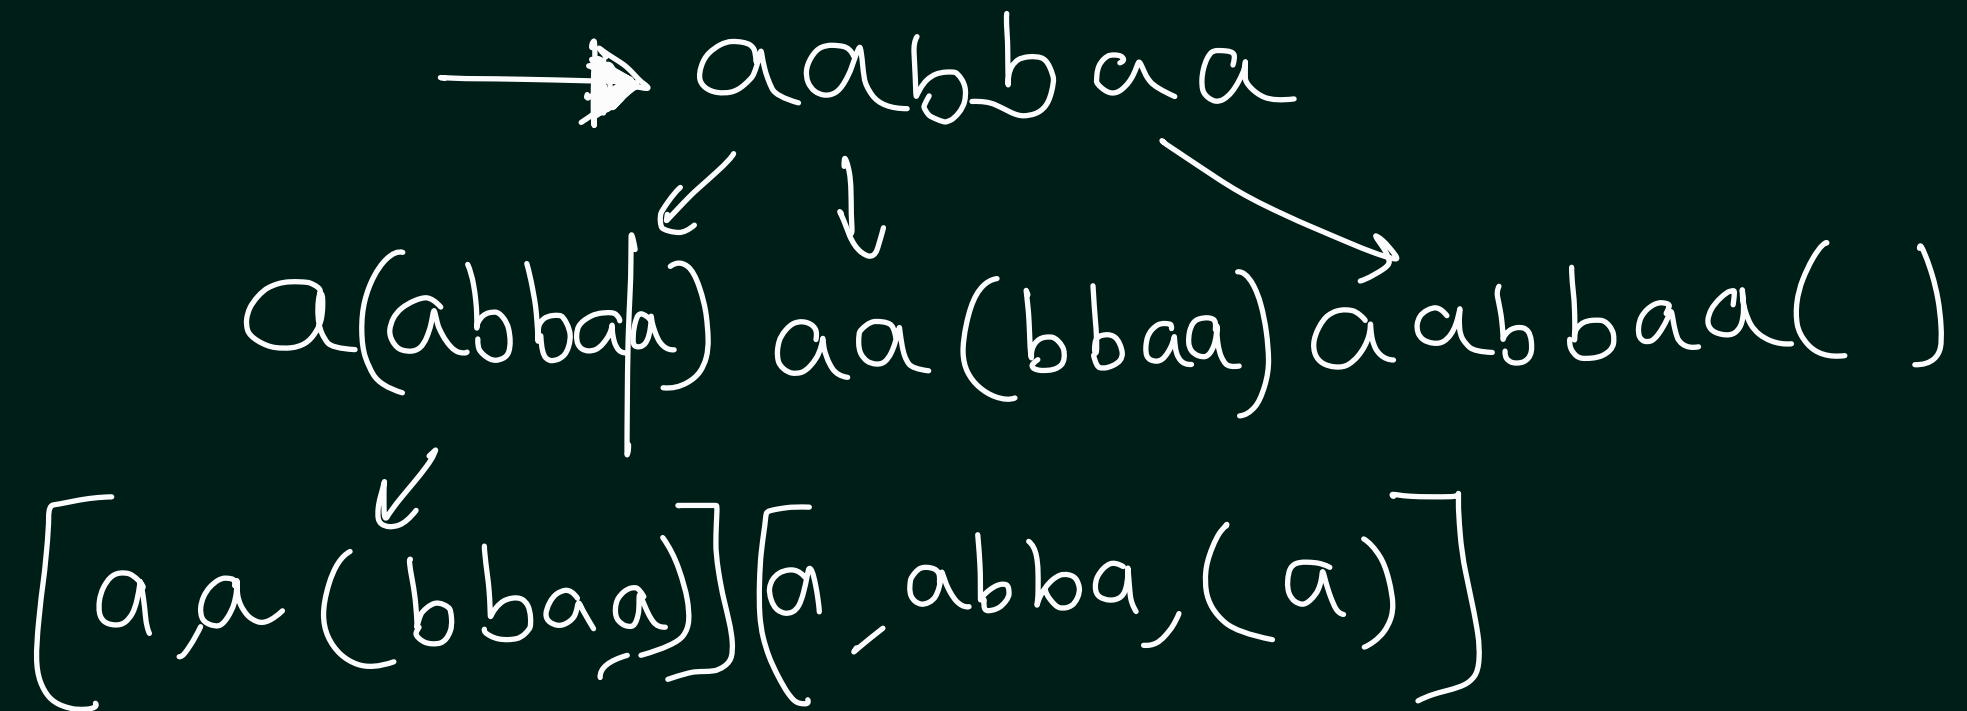 aabbaa
a(abbaa) aa(bbaa) aabbaa()
[a,a(bbaa)][a, abba,(a)]